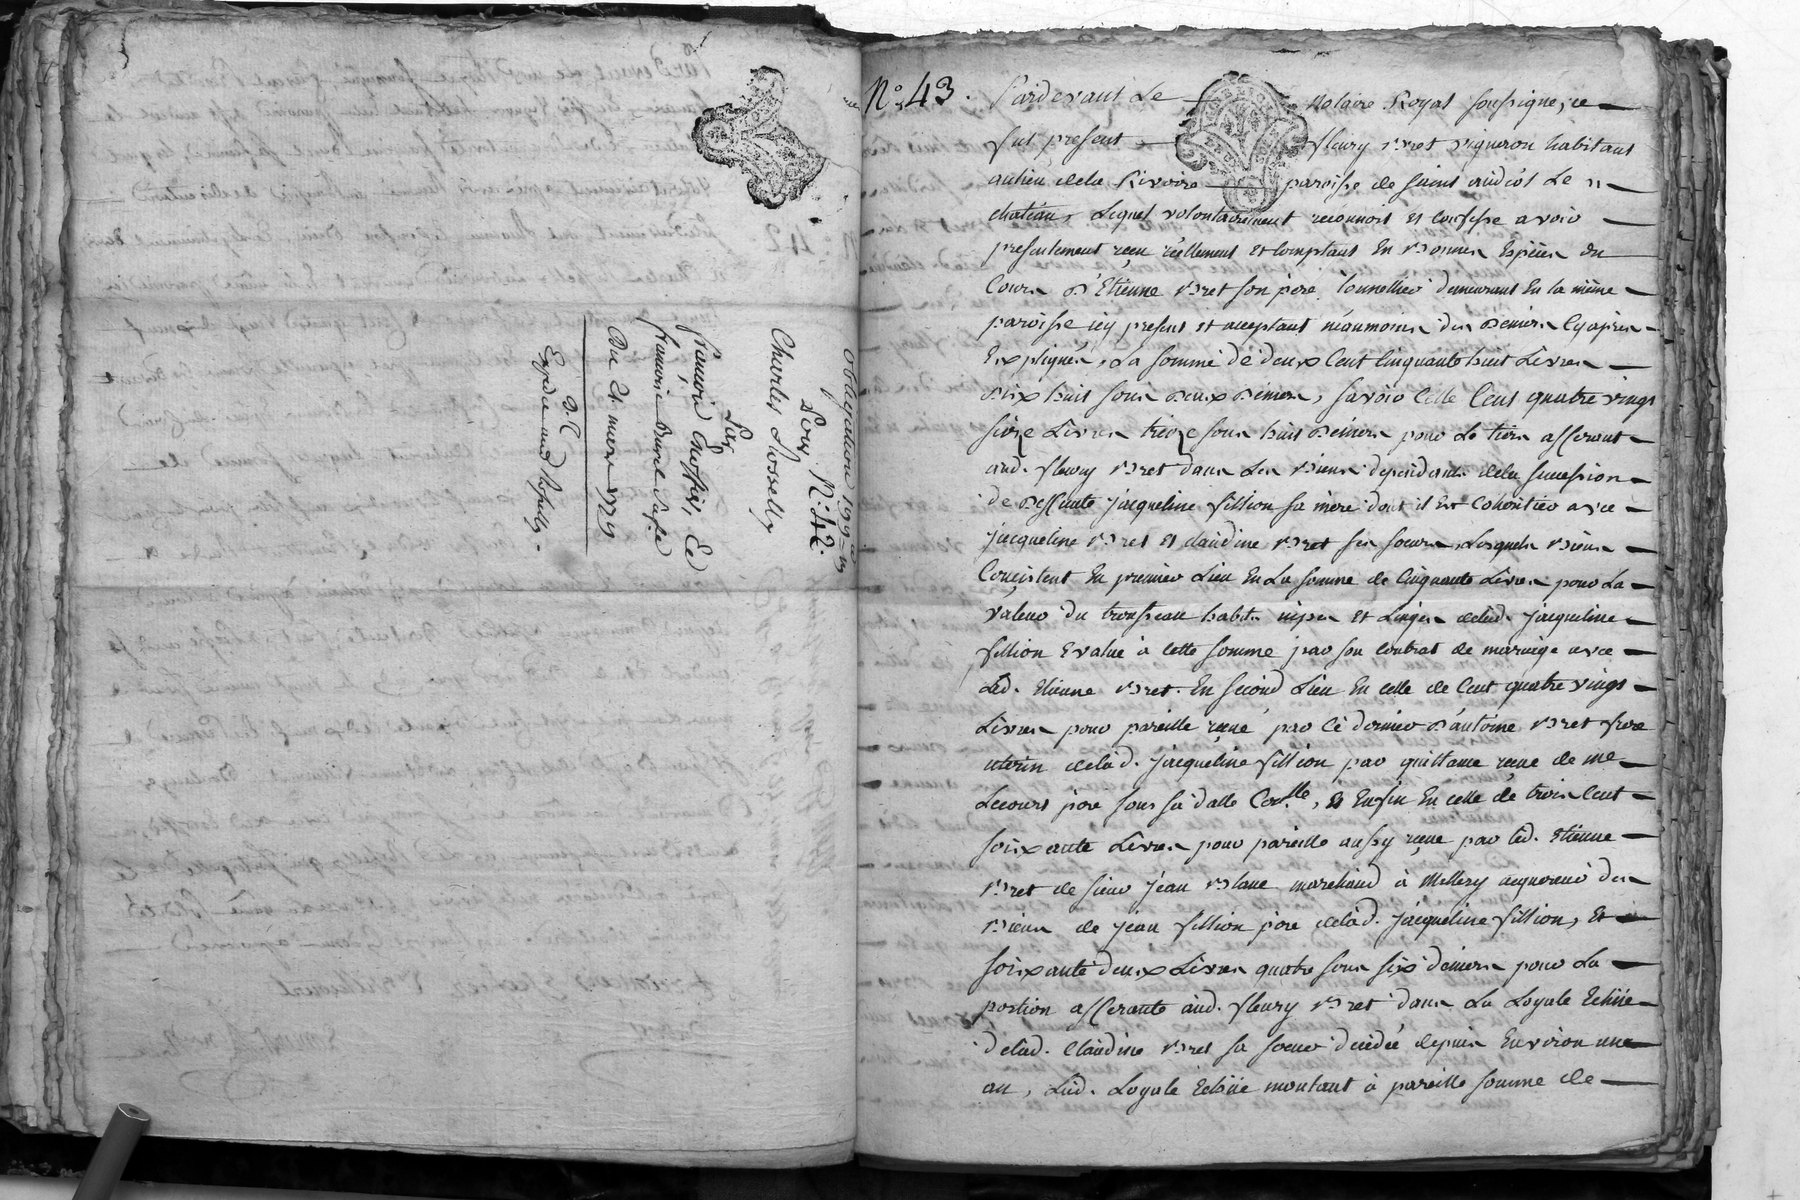 obligation 199
Pour N.º 42.
Charles Dosselly
Par
François Et
Du 21. mars 1729
Expédié aud. Dosselly.
Nº 43.
Pardevant Le Notaire Royal soussigné, ce
fut présent fleury Bret vigneron habitant
au lieu dela Rivoire paroisse de saint andéol Le
château, Lequel volontairement reconnoit et confesse avoir
presentement reçu réellement et comptant En Bonnes Espèces du
Cours D'Etienne Bret son père tonnellier demeurant En la même
paroisse icy present et acceptant néanmoins des Deniers Cy après
Expliqués, La somme de deux Cent Cinquante huit Livres
Dix huit sous Deux Deniers, savoir Celle Cent quatre vingt
seize Livres treize sous huit Deniers pour Le tiers afferant
aud. fleury Bret dans Les Biens dependants dela succession
de Deffunte jacqueline fillion sa mère dont il Est Cohéritier avec
jacqueline Bret et claudine Bret ses sœurs, Lesquels Biens
Consistent En premier Lieu En La somme de Cinquante Livres pour La
valeur du trousseau habits nipes et Linges delad. jacqueline
fillion Evalué à cette somme par son contrat de mariage avec
Led. Etienne Bret. En second Lieu En celle de Cent quatre vingt
Livres pour pareille reçue par Ce dernier D'antoine Bret frère
uterin delad. jacqueline fillion par quittance reçue de me
Lecourt père sous sa datte Con.lle, et Enfin En celle de trois Cent
soixante Livres pour pareille aussy reçue par led. Etienne
Bret de sieur jean Blanc marchand à Millery acquereur des
Biens de jean fillion père delad. jacqueline fillion, Et
soixante deux Livres quatre sous six deniers pour La
portion afferante aud. fleury Bret dans La Loyale Echüe
delad. Claudine Bret sa sœur decédée depuis Environ une
an, Lad. Loyale Echüe montant à pareille somme de